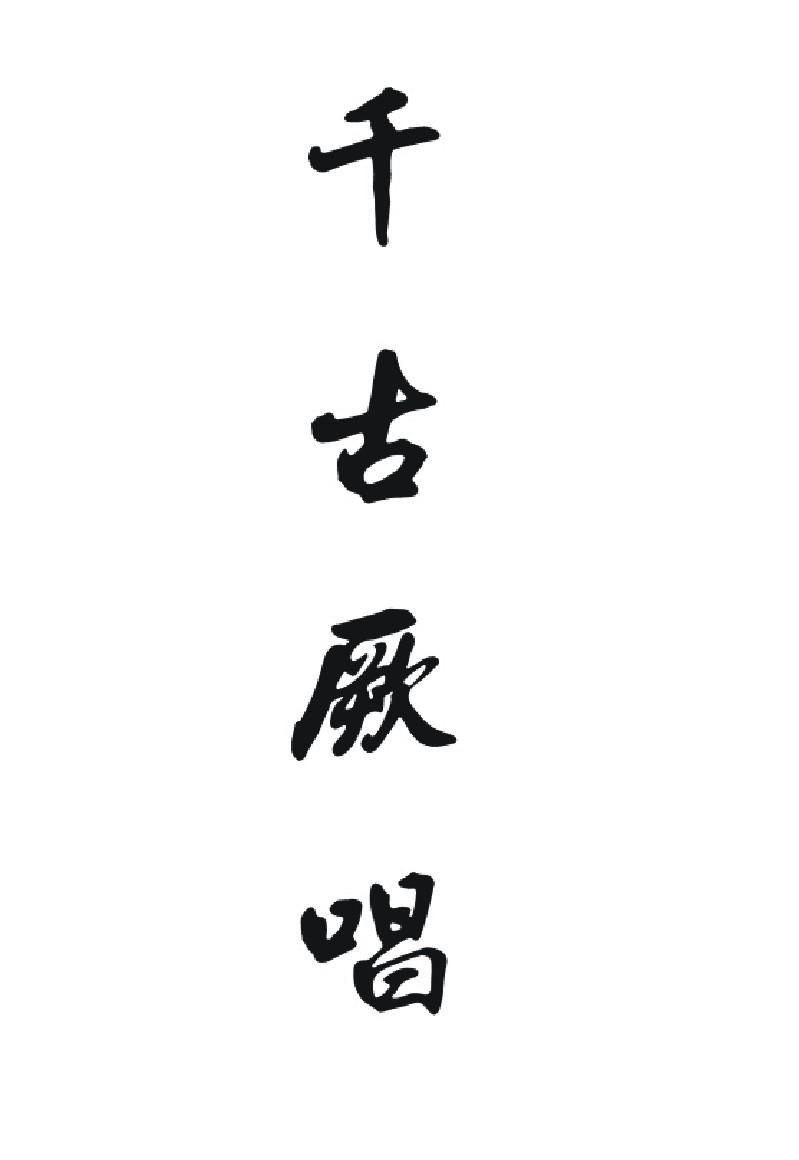 千古厥唱